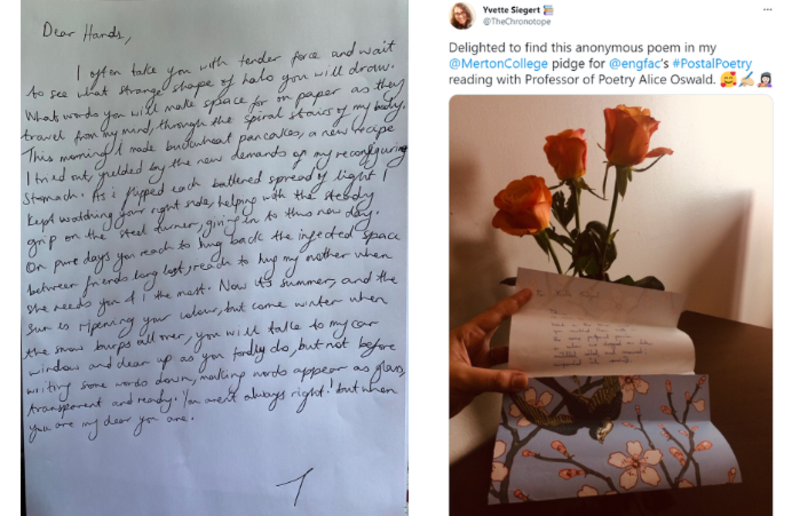 Dear Hands,
I often take you with tender force and wait
to see what strange shape of halo you will draw.
What words you will make space for on paper as they
travel from my mind, through the spiral stairs of my body.
This morning I made buckwheat pancakes, a new recipe
I tried out, guided by the new demands of my reconfiguring
stomach. As i flipped each battered spread of light I
kept watching your right side, helping with the steady
grip on the steel turner, giving in to this new day.
On pure days you reach to hug back the infected space
between friends long lost, reach to hug my mother when
she needs you & I the most. Now it's summer, and the
sun is ripening your colour, but come winter when
the snow burps all over, you will take to my car
window and clean up as you fondly do, but not before
writing some words down, making words appear as glass,
transparent and ready. You aren't always right! but when
you are my dear you are.
Yvette Siegert
@TheChronotope
Delighted to find this anonymous poem in my
@MertonCollege pidge for @engfac's #PostalPoetry
reading with Professor of Poetry Alice Oswald. 🥰✍🏼👩🏻‍🚀